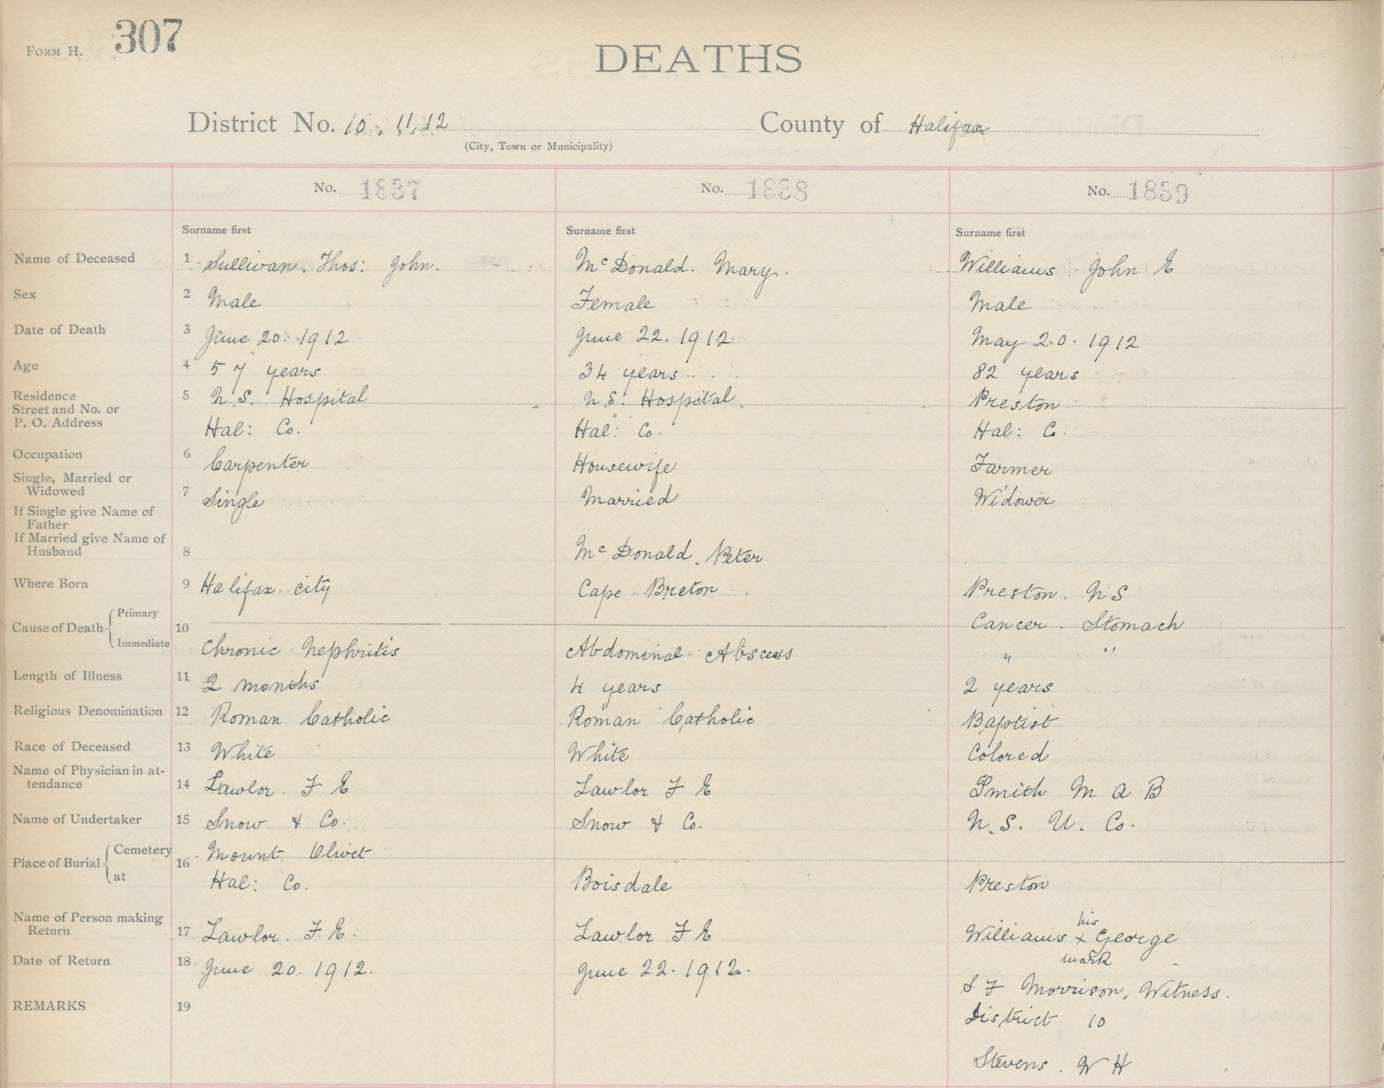 FORM H. 307
DEATHS
District No. 10, 11, 12 County of Halifax
(City, Town or Municipality)
No. 1837 No. 1838 No. 1839
Surname first Surname first Surname first
Name of Deceased 1 Sullivan. Thos: John. McDonald. Mary. Williams John E
Sex 2 Male Female Male
Date of Death 3 June 20. 1912 June 22. 1912 May 20. 1912
Age 4 57 years 34 years 82 years
Residence 5 N.S. Hospital N.S. Hospital Preston
Street and No. or
P. O. Address Hal: Co. Hal: Co. Hal: Co.
Occupation 6 Carpenter Housewife Farmer
Single, Married or
Widowed 7 Single Married Widower
If Single give Name of
Father
If Married give Name of
Husband 8 McDonald. Peter
Where Born 9 Halifax city Cape Breton Preston. NS
Cause of Death { Primary 10 Cancer. Stomach
Immediate Chronic Nephritis Abdominal Abscess " "
Length of Illness 11 2 months 4 years 2 years
Religious Denomination 12 Roman Catholic Roman Catholic Baptist
Race of Deceased 13 White White Colored
Name of Physician in at-
tendance 14 Lawlor. F E Lawlor F E Smith M A B
Name of Undertaker 15 Snow & Co. Snow & Co. N.S. U. Co.
Place of Burial { Cemetery 16 Mount Olivet
at Hal: Co. Boisdale Preston
Name of Person making
Return 17 Lawlor. F E. Lawlor F E Williams his x mark George
Date of Return 18 June 20. 1912. June 22. 1912.
S F Morrison, Witness.
REMARKS 19 District 10
Stevens. W H